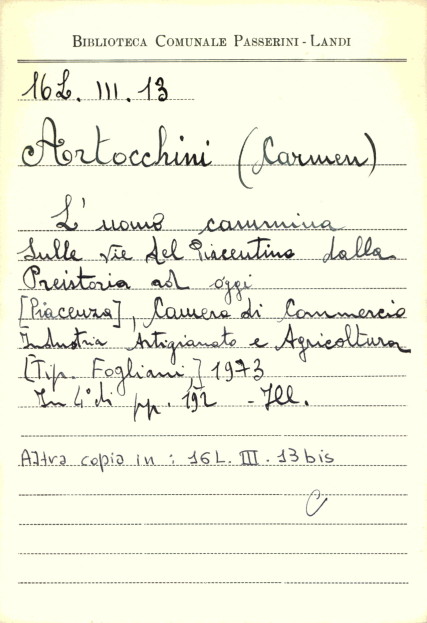 BIBLIOTECA COMUNALE PASSERINI - LANDI
16 L. III. 13
Artocchini (Carmen)
L'uomo cammina
sulle vie del Piacentino dalla
Preistoria ad oggi
[Piacenza], Camera di Commercio
Industria Artigianato e Agricoltura
[Tip. Fogliani,] 1973
In 4° di pp. 192 - Ill.
Altra copia in : 16 L. III. 13 bis
C